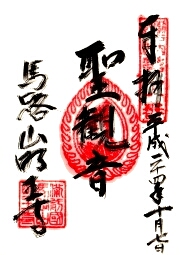 奉拝 平成二十四年十月七日
聖観音
馬路山明王寺